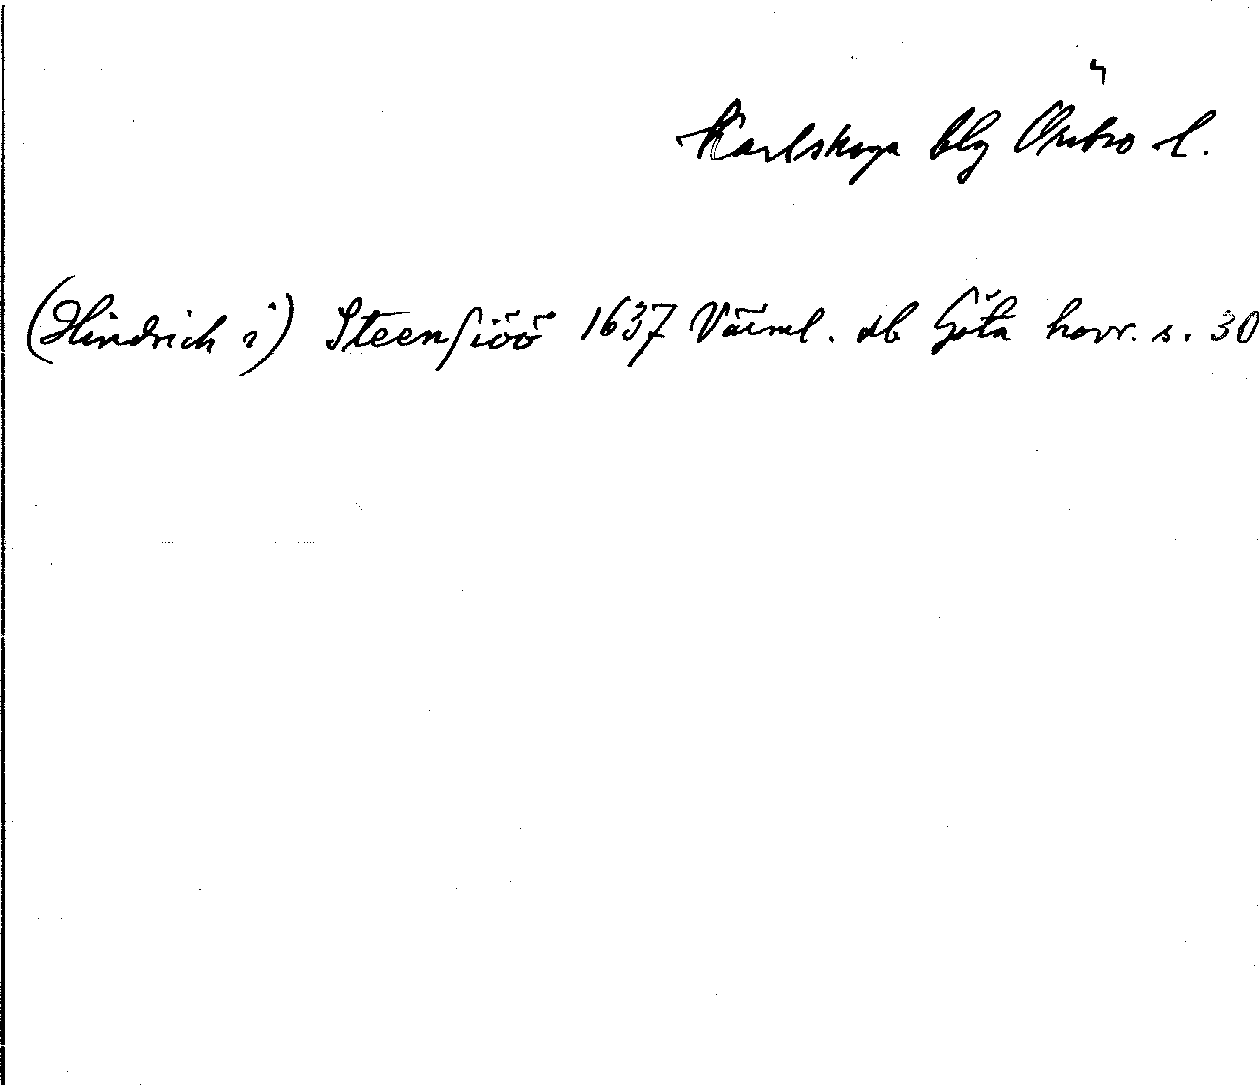 Karlskoga blg Örebro l.
(Hindrich i) Steensiöö 1637 Värml. db Göta hovr. s. 30